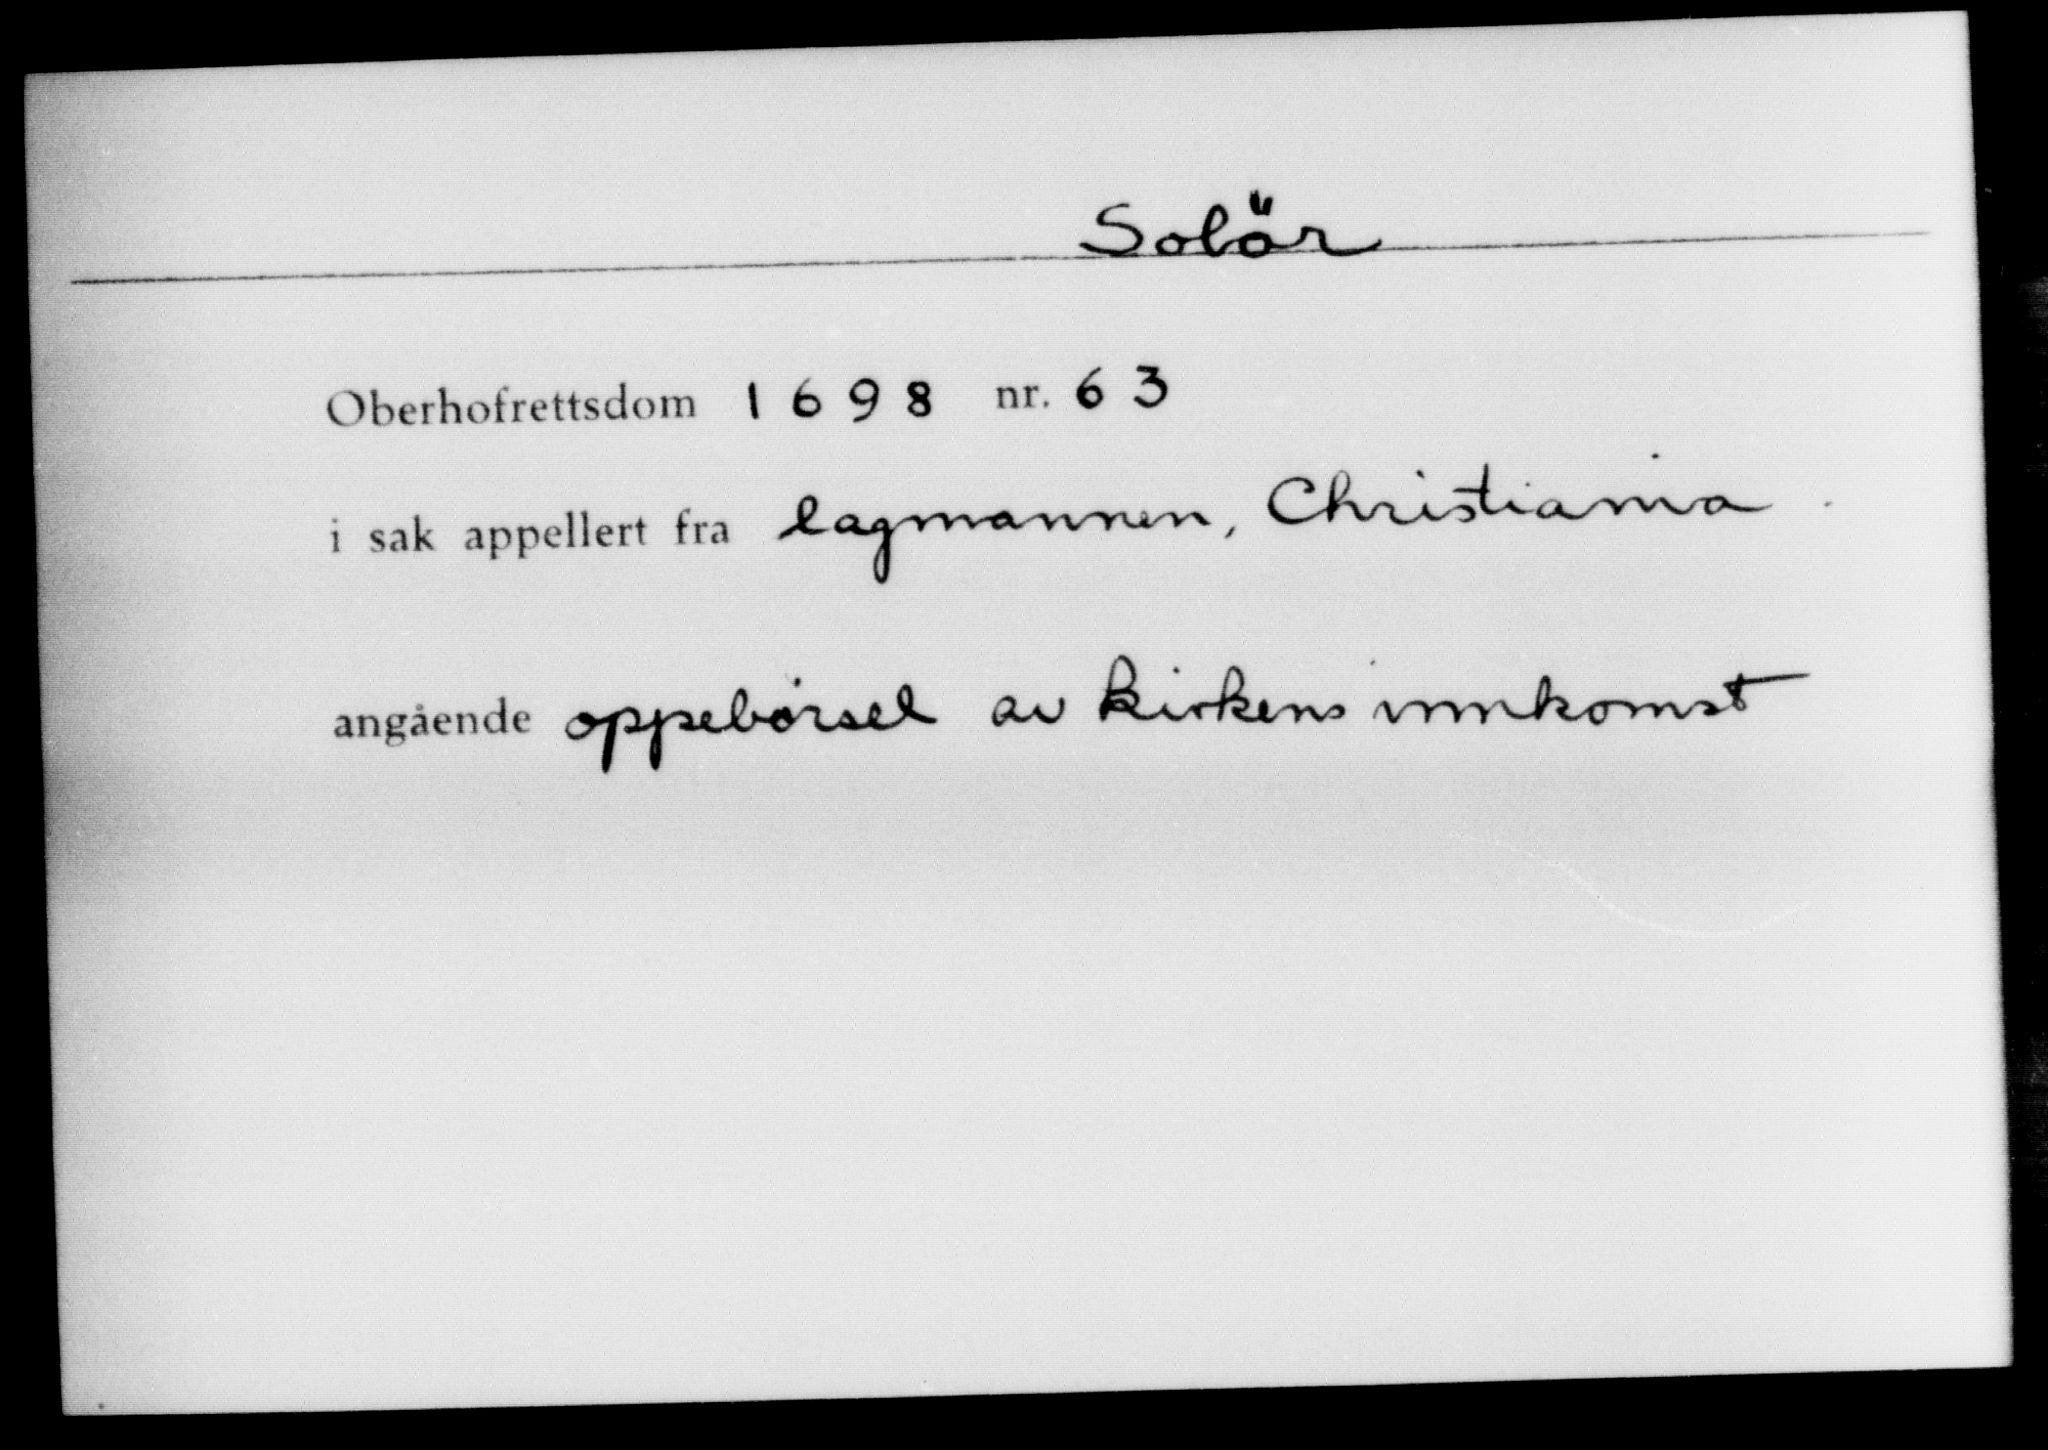 Solör
Oberhofrettsdom 1698 nr. 63
i sak appellert fra lagmannen, Christiania
angående oppebørsel av kirkens innkomst